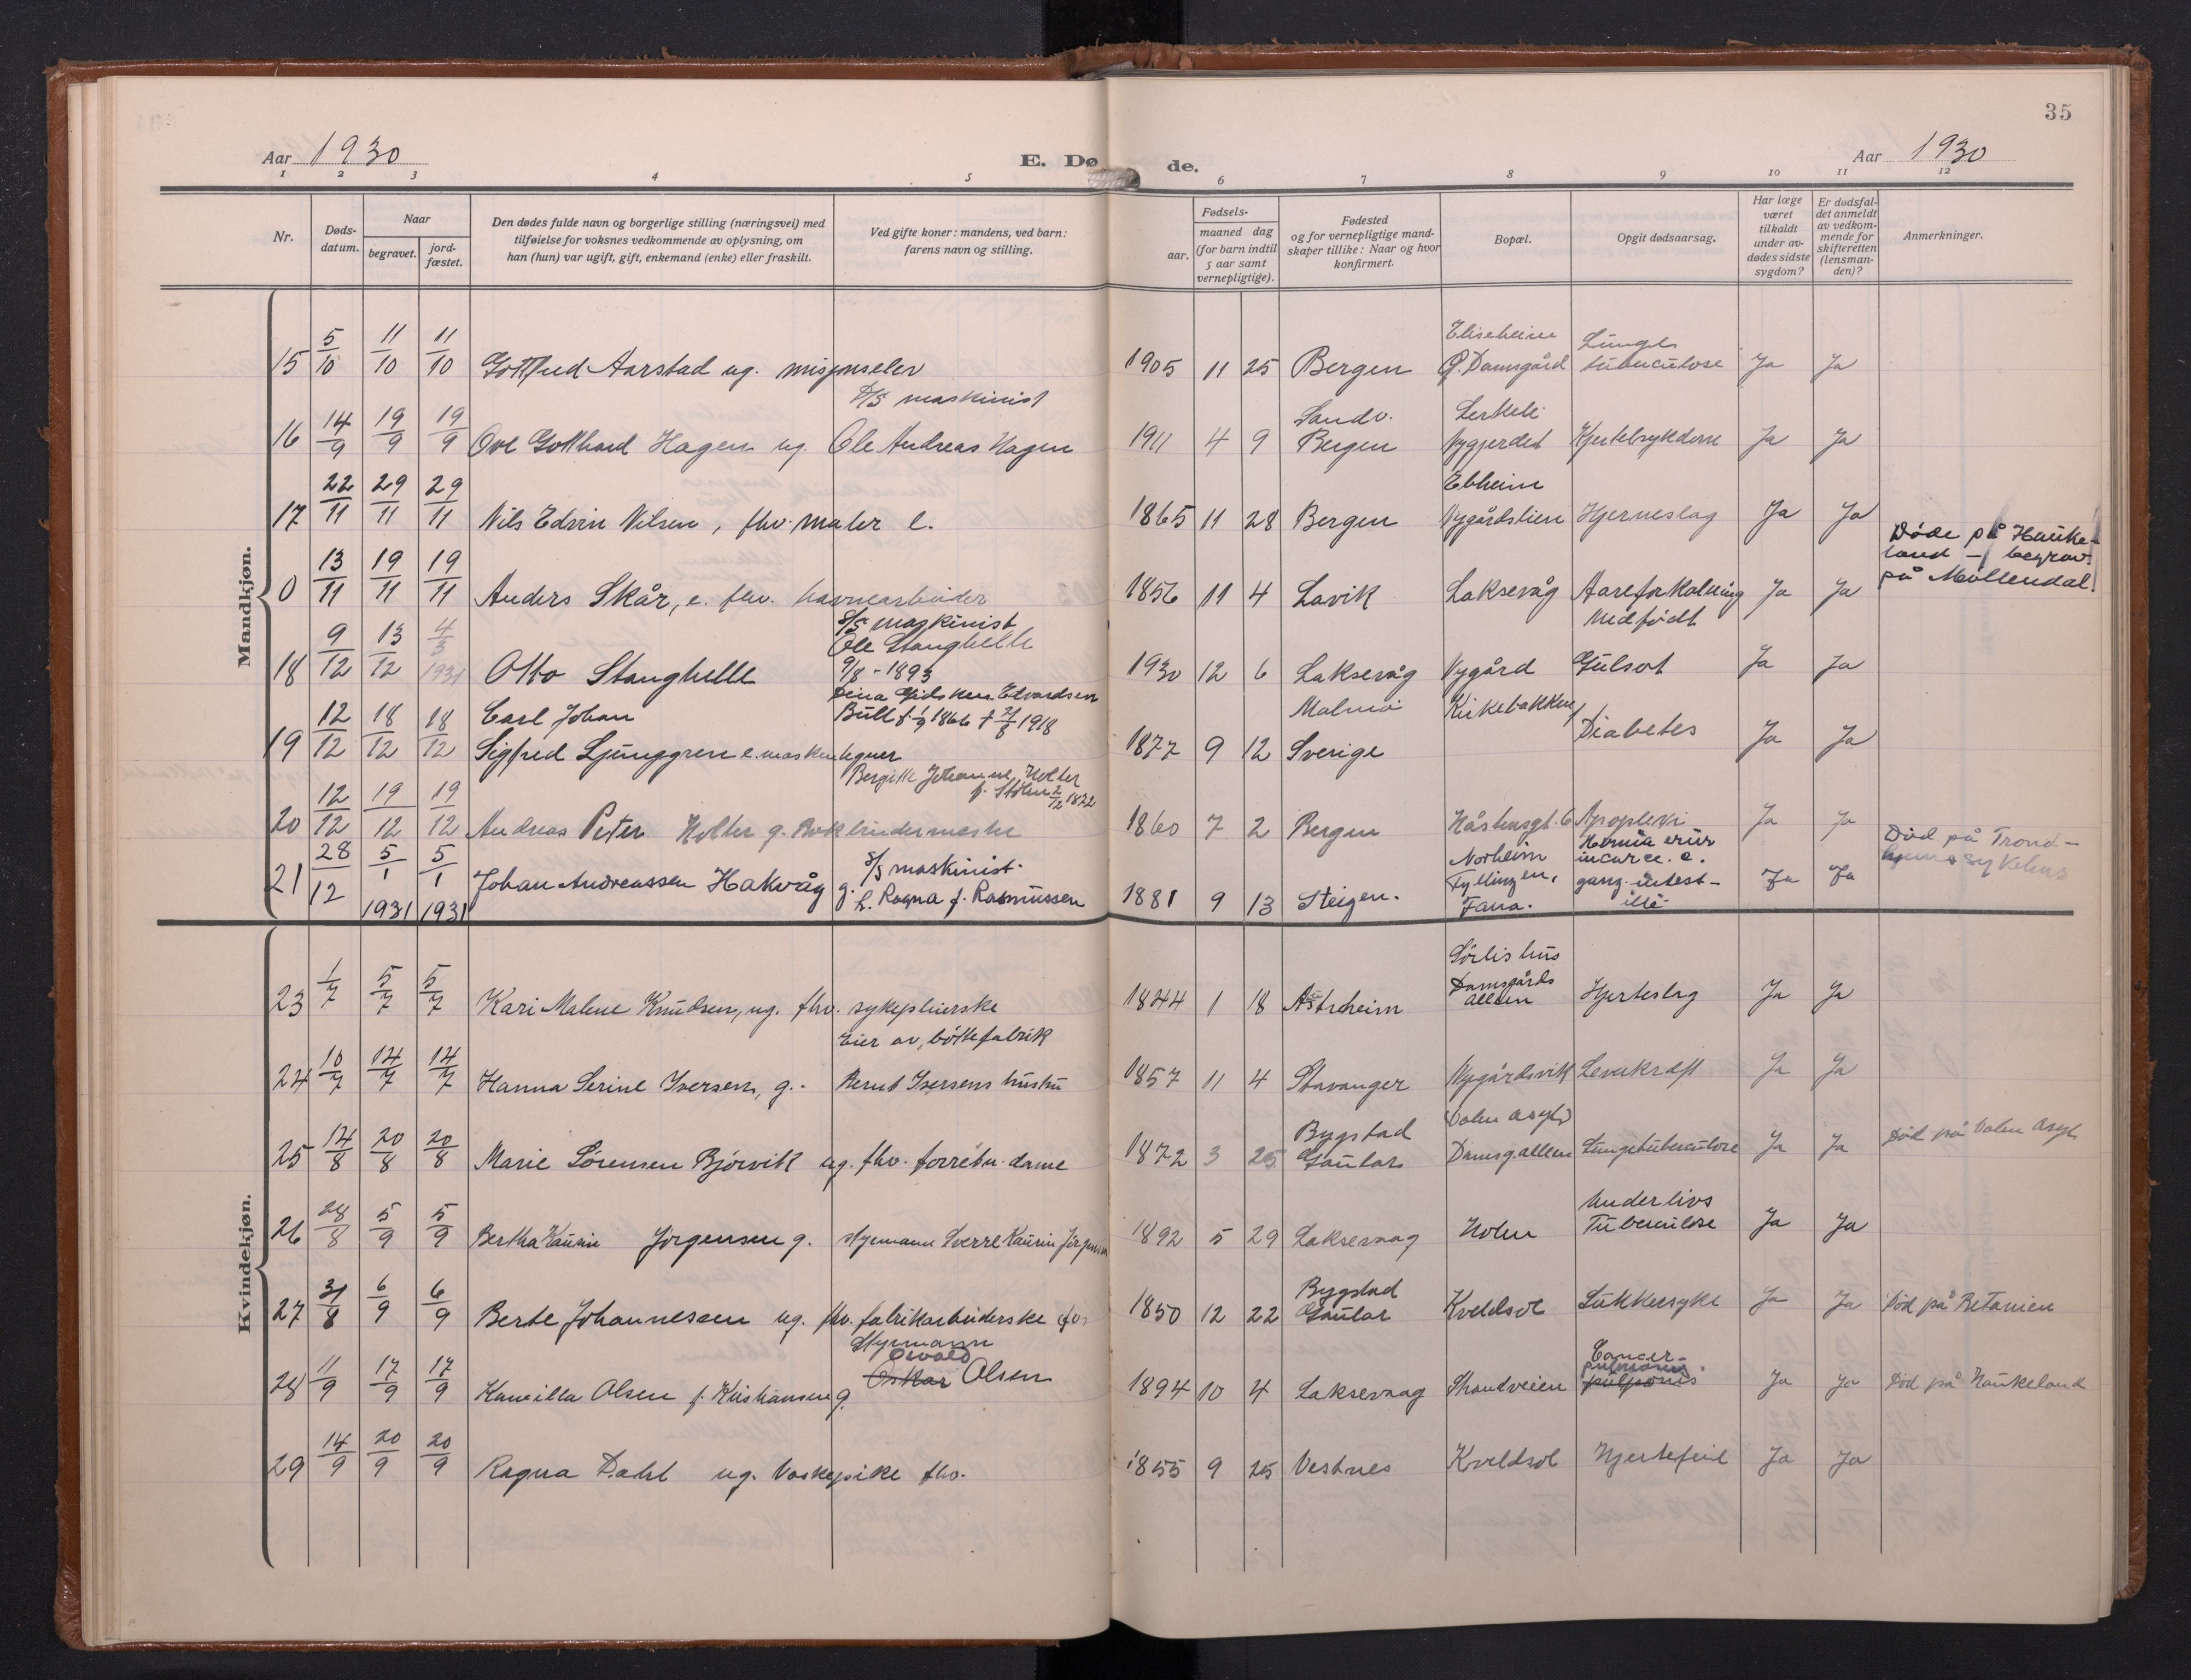 35
Aar 1930 E. Dø de. Aar 1930
1 2 3 4 5 6 7 8 9 10 11 12
Nr.
Døds-
datum.
Naar
begravet.
jord-
fæstet.
Den dødes fulde navn og borgerlige stilling (næringsvei) med
tilføielse for voksnes vedkommende av oplysning, om
han (hun) var ugift, gift, enkemand (enke) eller fraskilt.
Ved gifte koner: mandens, ved barn:
farens navn og stilling.
Fødsels-
aar.
maaned dag
(for barn indtil
5 aar samt
vernepligtige).
Fødested
og for vernepligtige mand-
skaper tillike: Naar og hvor
konfirmert.
Bopæl.
Opgit dødsaarsag.
Har læge
været
tilkaldt
under av-
dødes sidste
sygdom?
Er dødsfal-
det anmeldt
av vedkom-
mende for
skifteretten
(lensman-
den)?
Anmerkninger.
Mandkjøn.
Eliseheim Lunge
15 5/10 11/10 11/10 Gottfred Aarstad ug. misjonselev 1905 11 25 Bergen Damsgård tuberculose Ja Ja
D/S maskinist
Sandv.
16 14/9 19/9 19/9 Ove Gotthard Hagen ug. Ole Andreas Hagen 1911 4 9 Bergen Nygjerdet Hjertesykdom Ja Ja
Ebheim
17 22/11 29/11 29/11 Nils Edvin Nilsen, fhv. maler e. 1865 11 28 Bergen Nygårdslien Hjerneslag Ja Ja
Døde på Hauke-
land - begrav.
på Møllendal.
0 13/11 19/11 19/11 Anders Skår, e. fhv. havnearbeider 1856 11 4 Lavik Laksevåg Aareforkalkning Ja Ja
S/S maskinist
Ole Stanghelle Medfødt
18 9/12 13/12 4/3 1931 Otto Stanghelle 9/8-1893 1930 12 6 Laksevåg Nygård Gulsot Ja Ja
Dina Gidsken Edvardsen
Carl Johan Bull f 1/9 1866 † 1918 Malmø Kirkebakken
19 12/12 18/12 18/12 Sigfred Ljunggren e. maskintegner 1877 9 12 Sverige Diabetes Ja Ja
Bergitte Johanne Holter
f. 1872
20 12/12 19/12 19/12 Andreas Peter Holter g. Bokbindermester 1860 7 2 Bergen Håstensgt. 6 Apoplexi Ja Ja
21 28/12 5/1 1931 5/1 1931 Johan Andreassen Hakvåg S/S maskinist.
g. h. Ragna f. Rasmussen 1881 9 13 Steigen. Norheim
Fyllingen,
Fana. Hernia crur
incarc. c.
gang. intest-
Ja Ja Død på Trond-
hjems sykehus
Kvindekjøn.
Sørlis hus
Damsgårds
23 1/7 5/7 5/7 Kari Malene Knudsen, ug. fhv. sykepleierske 1844 1 18 Askheim alleen Hjerteslag Ja Ja
Eier av, bøttefabrik
24 10/7 14/7 14/7 Hanna Serine Iversen, g. Bernt Iversens hustru 1857 11 4 Stavanger Nygårdsvik Leverkræft Ja Ja
Bygstad Dalen asyl
25 14/8 20/8 20/8 Marie Sørensen Bjørvik ug. fhv. forretn. dame 1872 3 25 Gaular Damsg.alleen Lungetuberculose Ja Ja Død på Dalen Asyl
Underlivs
26 28/8 5/9 5/9 Bertha Kaurin Jørgensen g. styrmann Sverre Kaurin Jørgensen 1892 5 29 Laksevaag Holen Tuberculose Ja Ja
Bygstad
27 31/8 6/9 6/9 Berte Johannessen ug. fhv. fabrikarbeiderske 1850 12 22 Gaular Kveldsol Sukkersyke Ja Ja Død på Betanien
Styrmann
Osvald Cancer-
pulmonis.
28 11/9 17/9 17/9 Kamilla Olsen f. Kristiansen g. Oskar Olsen 1894 10 4 Laksevaag Strandveien pulponis Ja Ja Død på Haukeland
29 14/9 20/9 20/9 Ragna Dahl ug. Vaskepike fhv. 1855 9 25 Vestnes Kveldsol Hjertefeil Ja Ja